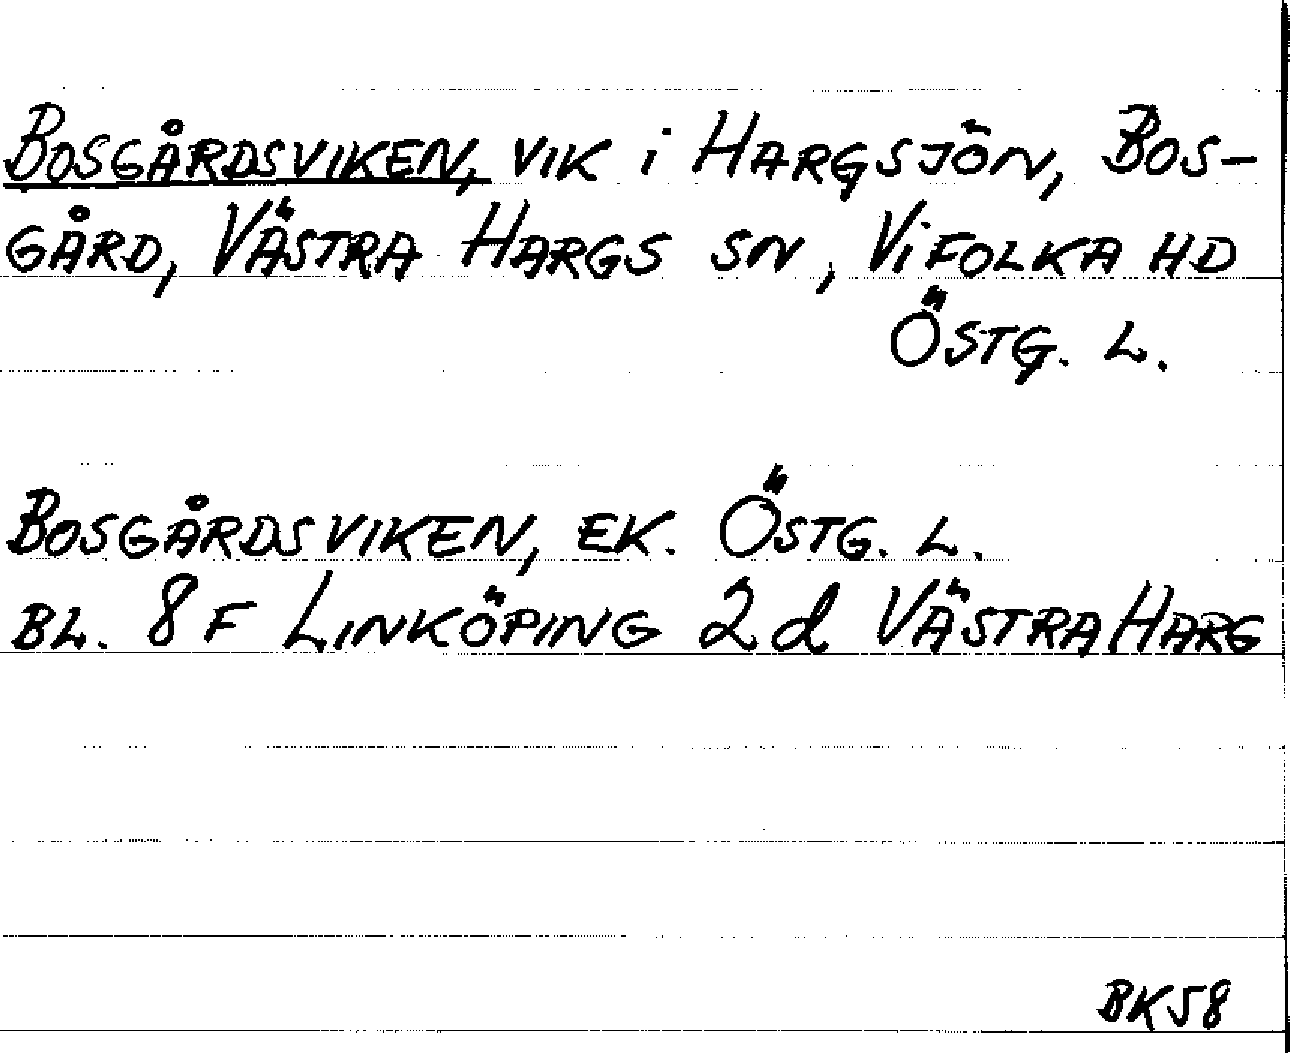 BOSGÅRDSVIKEN, VIK i HARGSJÖN, BOS-
GÅRD, VÄSTRA HARGS SN, VIFOLKA HD
ÖSTG. L.
BOSGÅRDSVIKEN, EK. ÖSTG. L.
BL. 8F LINKÖPING 2d VÄSTRA HARG
BK58